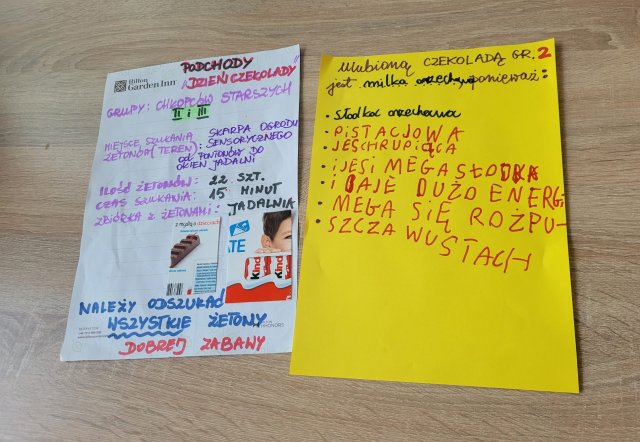 Hilton
Garden Inn
PODCHODY
"DZIEŃ CZEKOLADY"
GRUPY: CHŁOPCÓW STARSZYCH
II i III
MIEJSCE SZUKANIA
ŻETONÓW (TEREN):
SKARPA OGRODU
SENSORYCZNEGO
OD PONIONÓW DO
OKIEN JADALNI
ILOŚĆ ŻETONÓW: 22 SZT.
CZAS SZUKANIA: 15 MINUT
ZBIÓRKA Z ŻETONAMI: JADALNIA
z myślą o dzieciach
ATE
Kind
NALEŻY ODSZUKAĆ
WSZYSTKIE ŻETONY
DOBREJ ZABAWY
HONORS
Ulubioną CZEKOLADĄ GR. 2
jest milka orzechowa, ponieważ:
• słodka orzechowa
• PISTACJOWA
• JESCHRUPIĄCA
• IJESI MEGASŁODKA
• I DAJE DUŻO ENERGI
• MEGA SIĘ ROŻPU-
• SZCZA WUSTACH